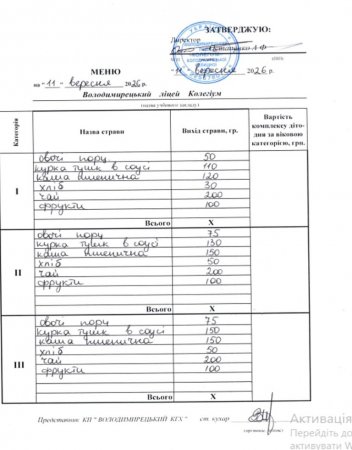 ЗАТВЕРДЖУЮ:
Директор
МЕНЮ
"11" вересня 2026р.
на "11" вересня 2026р.
Володимирецький ліцей Колегіум
(назва учбового закладу)
Категорія Назва страви Вихід страви, гр. Вартість комплексу діто-дня за віковою категорією, грн.
I
овочі пору 50
курка тушк в соусі 110
каша пшенична 120
хліб 30
чай 200
фрукти 100
Всього X
II
овочі пору 75
курка тушк в соусі 130
каша пшенична 150
хліб 50
чай 200
фрукти 100
Всього X
III
овочі пору 75
курка тушк в соусі 150
каша пшенична 150
хліб 50
чай 200
фрукти 100
Всього X
Представник КП " ВОЛОДИМИРЕЦЬКИЙ КГХ " ст. кухар
Активація
Перейдіть до
активувати W